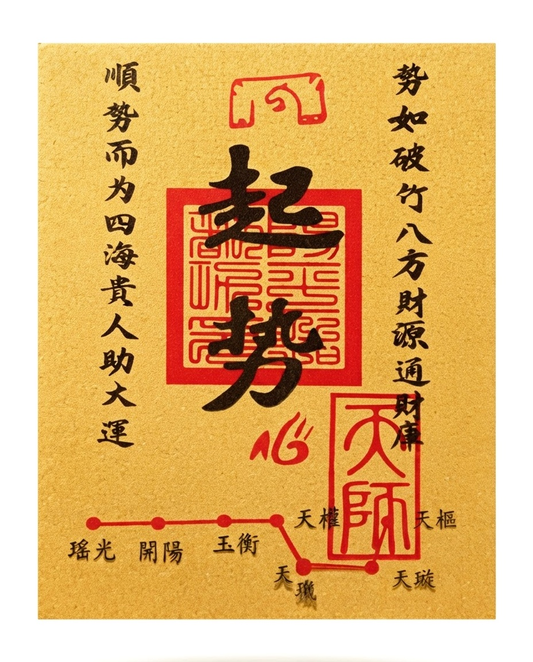 勢如破竹八方財源通財庫
起勢
順勢而为四海貴人助大運
心
天師
天樞
天璇
天璣
天權
玉衡
開陽
瑤光